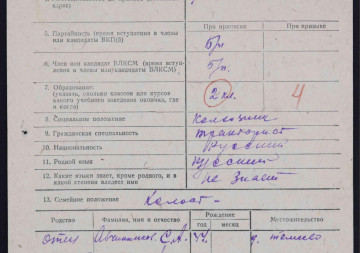 адрес)
При приписке
При призыве
5. Партийность (время вступления в члены
или кандидаты ВКП(б)
б/п
6. Член или кандидат ВЛКСМ. (время вступ-
ления в члены или кандидаты ВЛКСМ)
б/п.
7. Образование:
(указать, сколько классов или курсов
какого учебного заведения окончил, где
и когда)
2 кл.
4
8. Социальное положение
Колхозник
9. Гражданская специальность
тракторист
10. Национальность
Русский
11. Родной язык
Русский
12. Какие языки знает, кроме родного, и в
какой степени владеет ими
не знает
13. Семейное положение
Холост -
Родство
Фамилия, имя и отчество
Рождение
год
месяц
Местожительство
отец
С. А.
д.